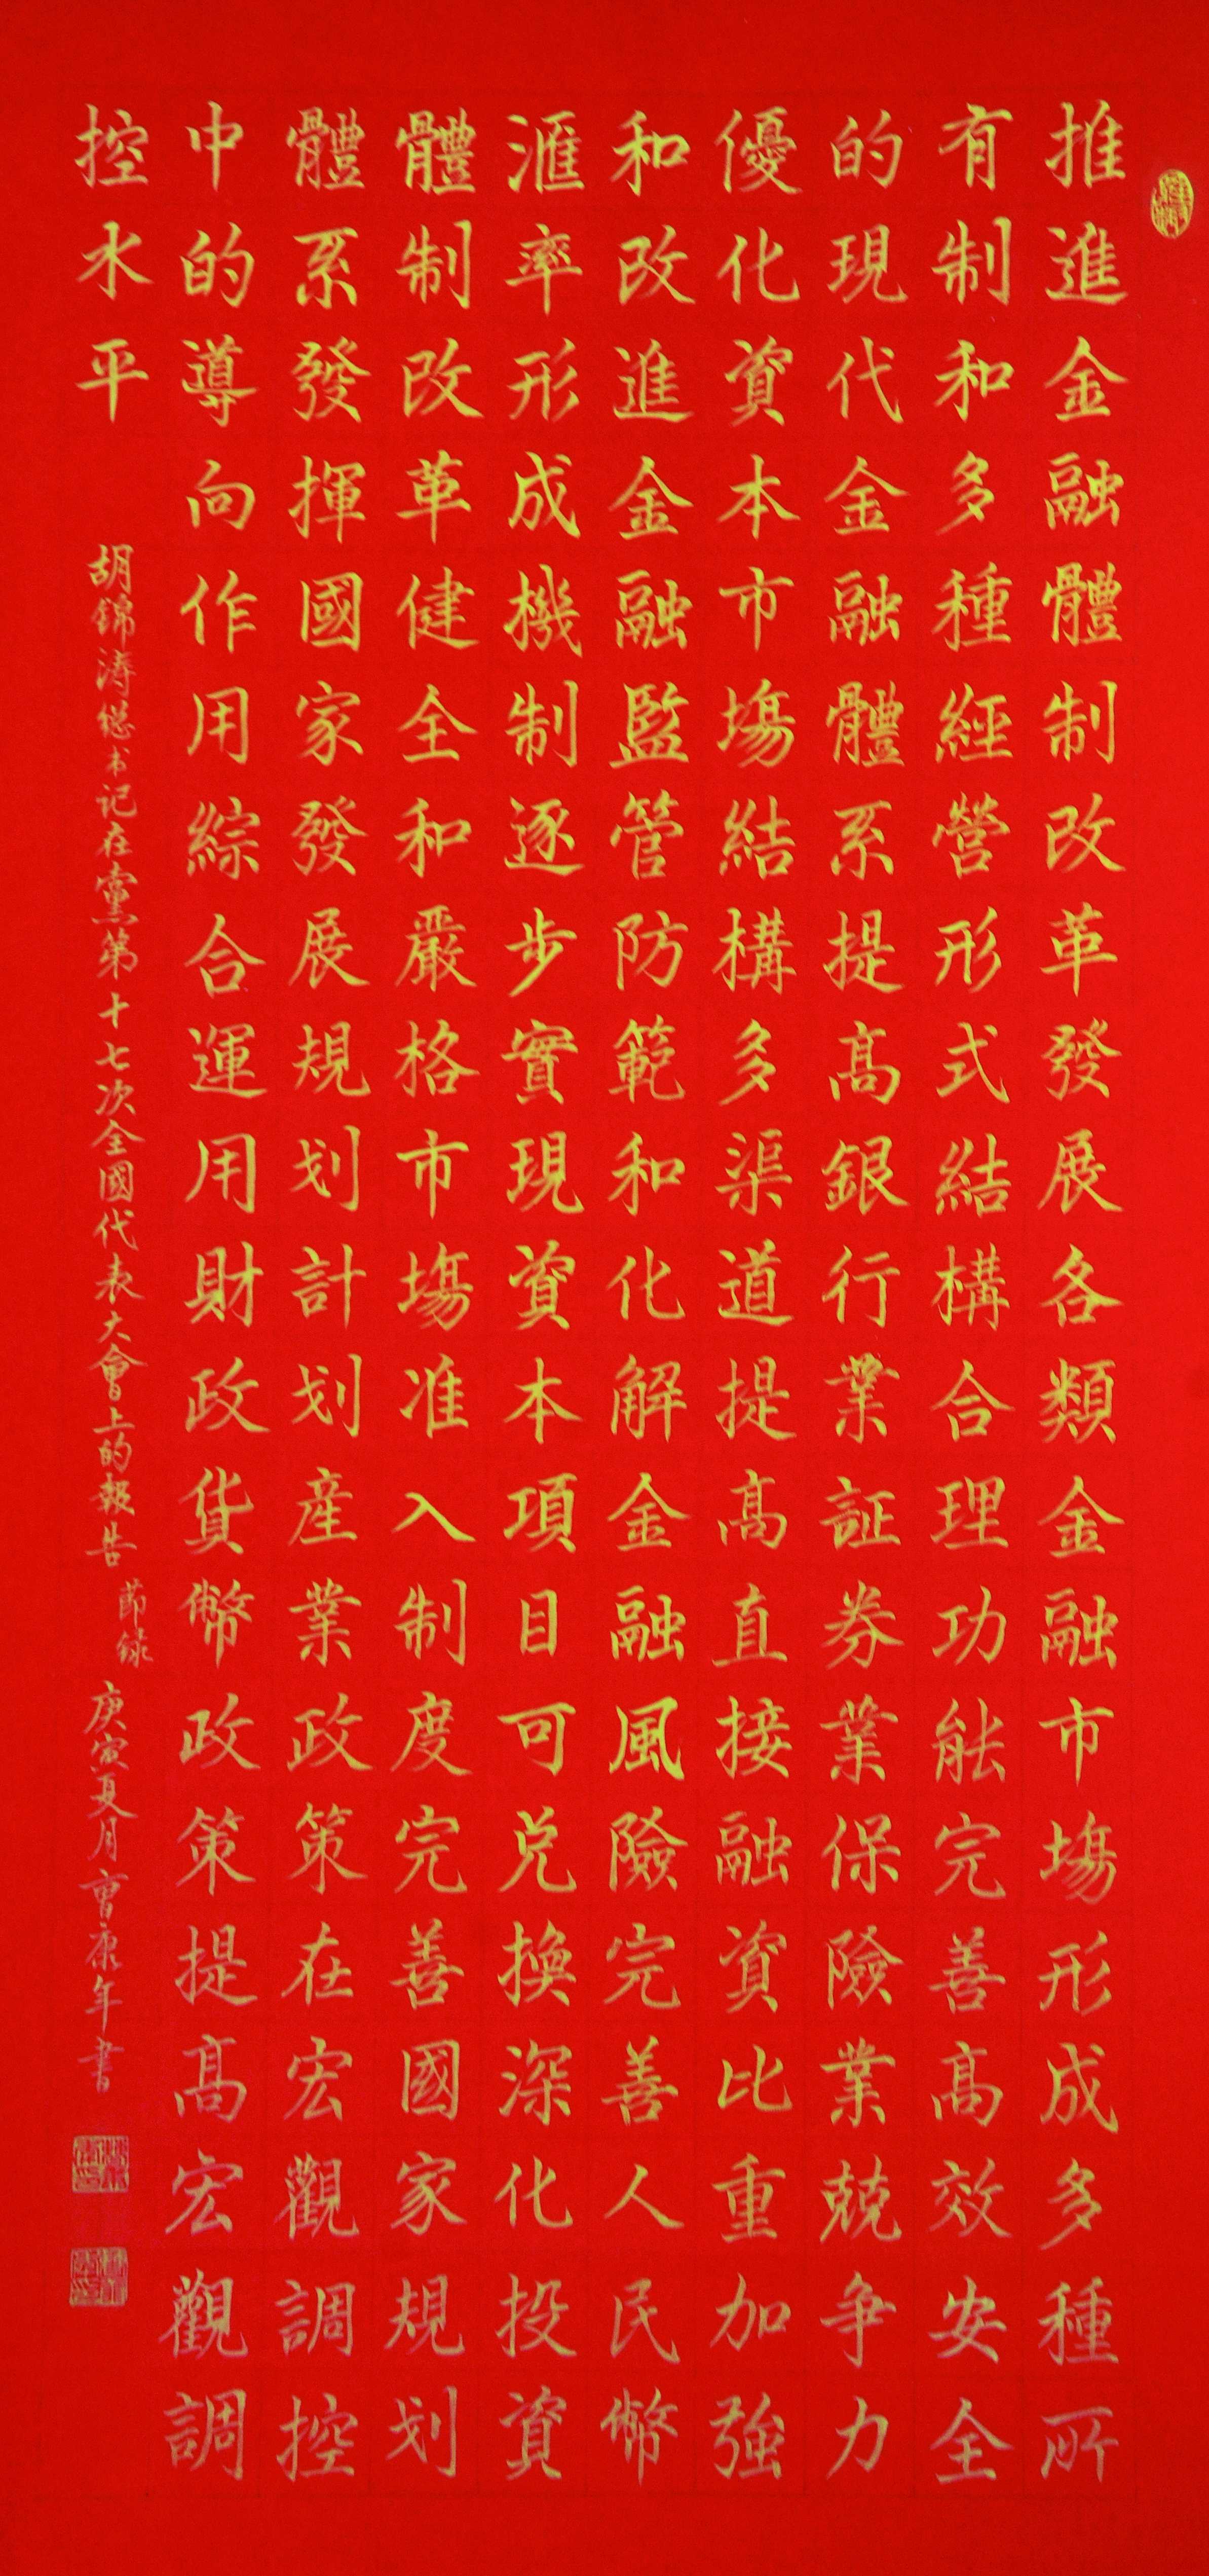 推進金融體制改革發展各類金融市塲形成多種所
有制和多種經營形式結構合理功能完善高效安全
的現代金融體系提高銀行業証券業保險業兢争力
優化資本市塲結構多渠道提高直接融資比重加強
和改進金融監管防範和化解金融風險完善人民幣
滙率形成機制逐步實現資本項目可兑換深化投資
體制改革健全和嚴格市塲准入制度完善國家規划
體系發揮國家發展規划計划産業政策在宏觀調控
中的導向作用綜合運用財政貨幣政策提高宏觀調
控水平
胡錦涛總书记在黨第十七次全國代表大會上的報告 節録 庚寅夏月曹康年書